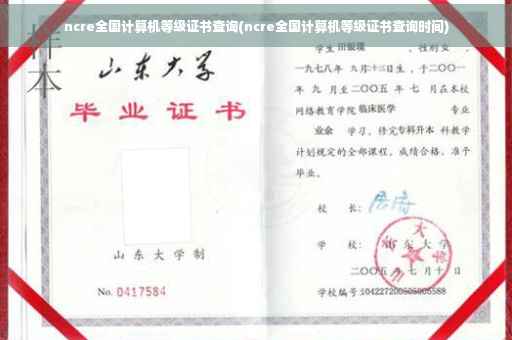 ncre全国计算机等级证书查询(ncre全国计算机等级证书查询时间)
样本
山东大学
毕业证书
山东大学制
No. 0417584
学生
性别女,
一九七八年 九月十三日生,于二〇〇一
年 九 月至二〇〇五 年 七 月在本校
网络教育学院 临床医学 专业
业余 学习,修完专科升本 科教学
计划规定的全部课程,成绩合格,准予
毕业。
校 长:
学 校: 山东大学
二〇〇五年七月十日
学校编号:104227200505005588